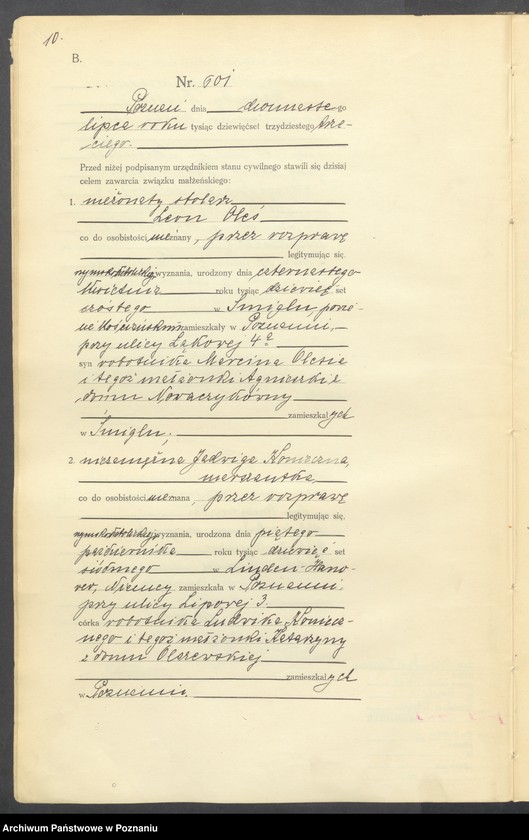 10.
B.
Nr. 601
Poznań dnia dwunastego
lipca roku tysiąc dziewięćset trzydziestego trze-
ciego.
Przed niżej podpisanym urzędnikiem stanu cywilnego stawili się dzisiaj
celem zawarcia związku małżeńskiego:
1. nieżonaty stolarz
Leon Oleś
co do osobistości nieznany, przez rozprawę
legitymując się,
wyznania, urodzony dnia czternastego
kwietnia roku tysiąc dziewięć set
szóstego w Śmiglu, powie-
cie Kościańskim zamieszkały w Poznaniu,
przy ulicy Łąkowej 4a
syn robotnika Marcina Olesia
i tegoż małżonki Agnieszki z
domu Nowaczykówny
zamieszkałych
w Śmiglu;
2. niezamężna Jadwiga Konieczna,
co do osobistości nieznana, przez rozprawę
legitymując się,
wyznania, urodzona dnia piątego
października, roku tysiąc dziewięć set
siódmego w Linden-Hano-
ver, Niemcy zamieszkała w Poznaniu,
przy ulicy Lipowej 3.
córka robotnika Ludwika Koniecz-
nego i tegoż małżonki Katarzyny
z domu Olszewskiej
zamieszkałych
w Poznaniu.
Archiwum Państwowe w Poznaniu